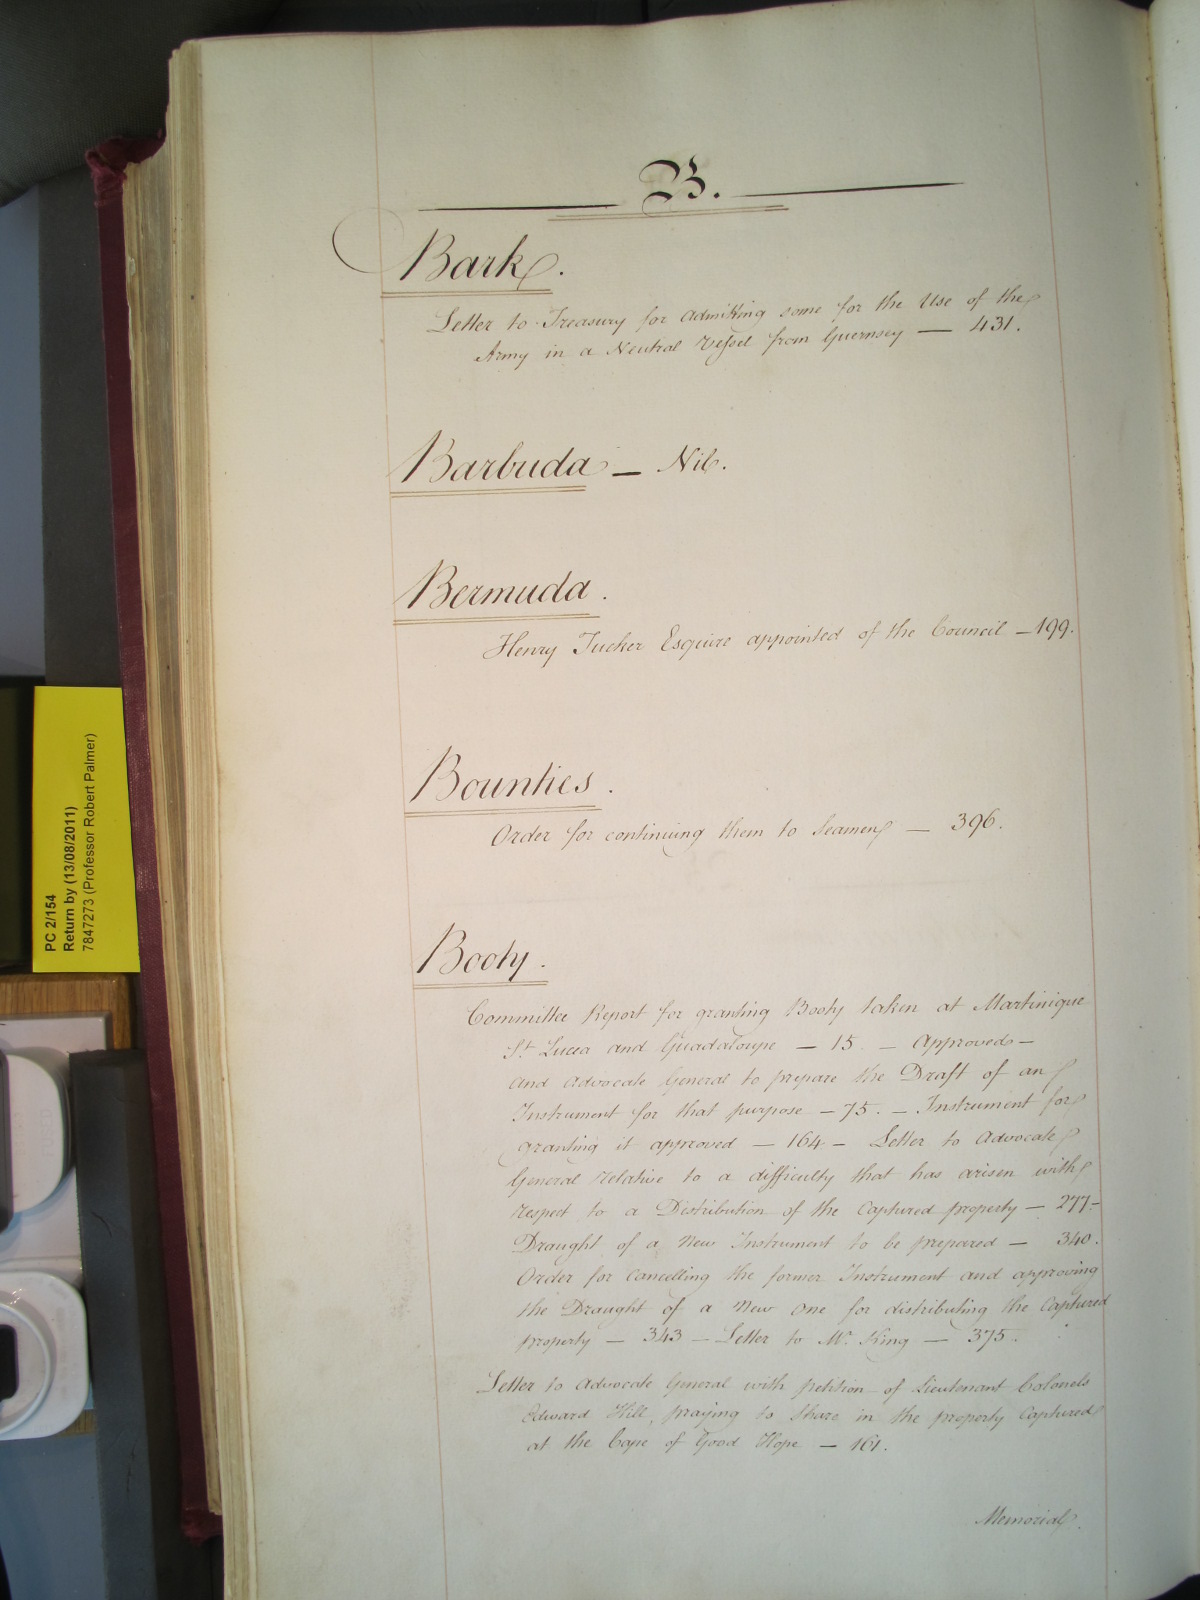 B.
Bark.
Letter to Treasury for admitting some for the Use of the
Army in a Neutral Vessel from Guernsey — 431.
Barbuda — Nil.
Bermuda.
Henry Tucker Esquire appointed of the Council — 199.
Bounties.
Order for continuing them to Seamen — 396.
Booty.
Committee Report for granting Booty taken at Martinique
St. Lucea and Guadaloupe — 15. — Approved —
and Advocate General to prepare the Draft of an
Instrument for that purpose — 75. — Instrument for
granting it approved — 164 — Letter to Advocate
General relative to a difficulty that has arisen with
respect to a Distribution of the Captured property — 277 —
Draught of a New Instrument to be prepared — 340.
Order for Cancelling the former Instrument and approving
the Draught of a New One for distributing the Captured
property — 343 — Letter to Mr. King — 375.
Letter to Advocate General with petition of Lieutenant Colonels
Edward Hill, praying to Share in the property Captured
at the Cape of Good Hope — 161.
Memorial.
PC 2/154
Return by (13/08/2011)
7847273 (Professor Robert Palmer)